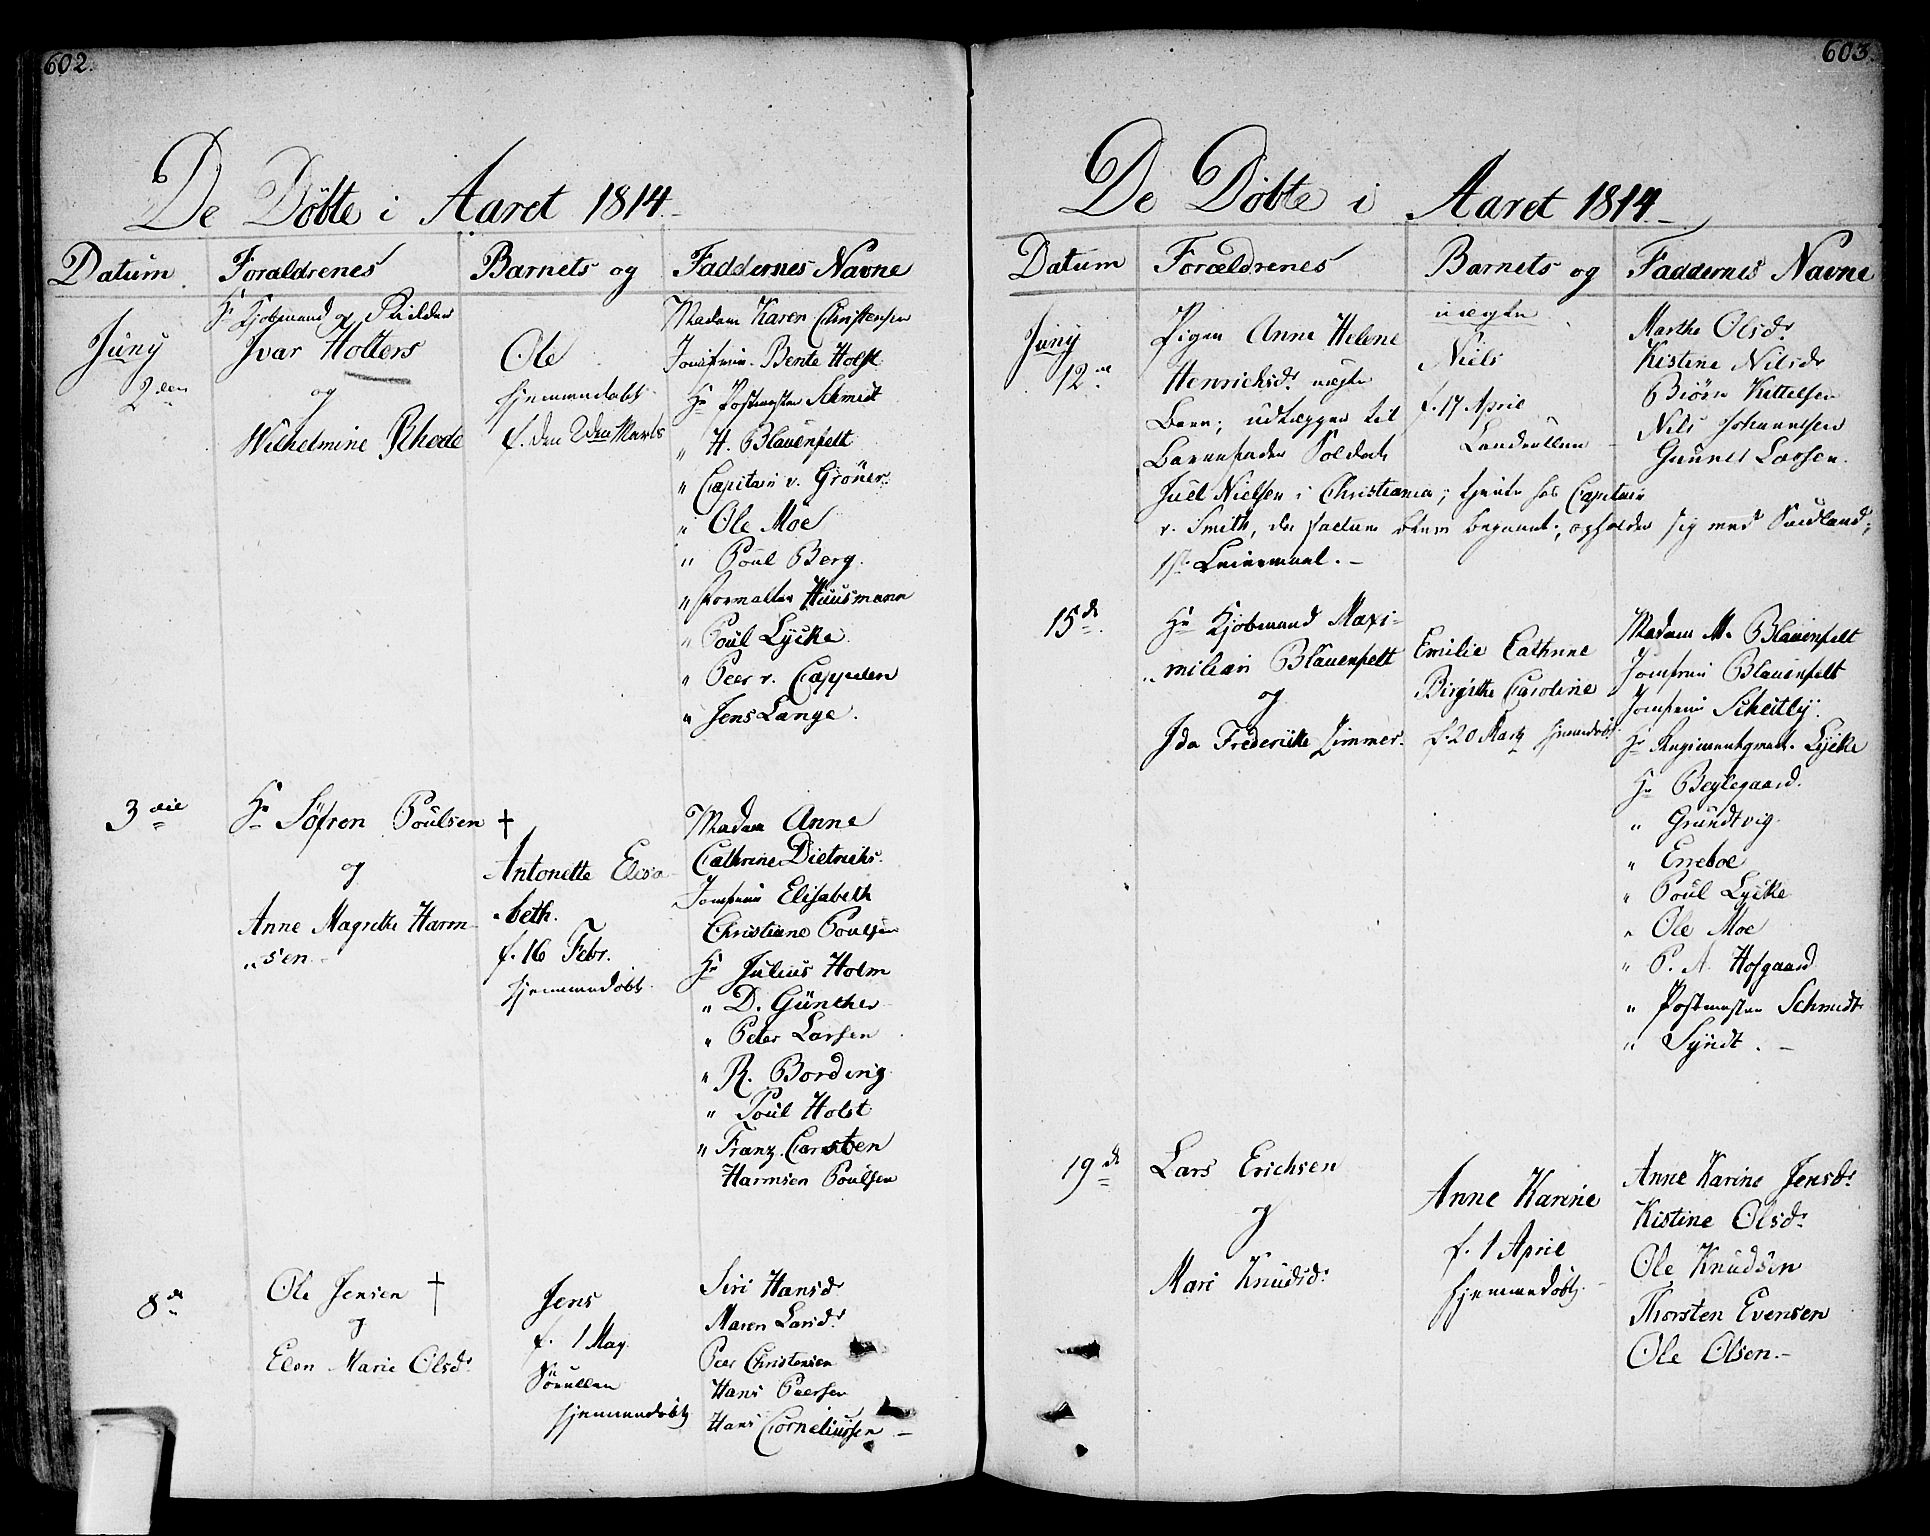 602.
De Döbte i Aaret 1814.
Datum Forældrenes Barnets og Faddernes Navne
Juny
2den
Hr Kjøbmand og Ridder
Ivar Holters
og
Wilhelmine Rhode
Ole
hjemmedøbt
f. den 2den Marts
Madam Karen Christensen
Jomfrue Bente Holst
Hr Postmester Schmidt
" H. Blauenfelt
" Capitain v. Gröner
" Ole Moe
" Poul Berg.
" Forvalter Huusmann
" Poul Lycke.
" Peer v. Cappelen
" Jens Lange.
3die
Hr Söfren Poulsen †
og
Anne Magrethe Harm
" sen.
Antonette Elisa
" beth.
f. 16 Febr.
hjemmedøbt.
Madam Anne
Cathrine Dietrichs.
Jomfrue Elisabeth
Christiane Poulsen
Hr Julius Holm
" D. Günther
" Peter Larsen
" R. Bording
" Poul Holst
" Franz Carsten
Harmsen Poulsen
8de
Ole Jensen †
og
Elen Marie Olsdr
Jens
f. 1 May
Sörullen
hjemmedøbt
Siri Hansdr
Maren Larsdr
Peer Christensen
Hans Peersen
Hans Corneliussen
603.
De Döbte i Aaret 1814
Datum Forældrenes Barnets og Faddernes Navne
Juny
12te
Pigen Anne Helene
Henrichsdr uægte
Barn; udlægger til
Barnefader Soldat
Juel Nielsen i Christiania; tjente hos Capitain
v. Smith, da factum blev begaaet; opholder sig med
1ste Leiermaal.
uægte
Niels
f. 17 April
Landrullen
Marthe Olsdr
Kistine Nilsdr
Biörn Kittelsen
Nils Johannesen
Gunner Larsen.
15de
Hr Kjøbmand Maxi-
" milian Blauenfelt
og
Ida Frederikke Zimmer.
Emilie Cathrine
Birgithe Caroline
f. 20 Marts hjemmedøbt
Madam M. Blauenfelt
Jomfrue Blauenfelt
Jomfrue Scheitly.
Hr Regimentqvart. Lycke
Hr Beylegaard.
" Grundtvig.
" Erreboe
" Poul Lycke
" Ole Moe
" P. A. Hofgaard
" Postmester Schmidt
" Syndt.
19de
Lars Erichsen
og
Mari Knudsdr
Anne Karine
f. 1 April
hjemmedøbt.
Anne Karine Jensdr
Kistine Olsdr
Ole Knudsen
Thorsten Evensen
Ole Olsen.